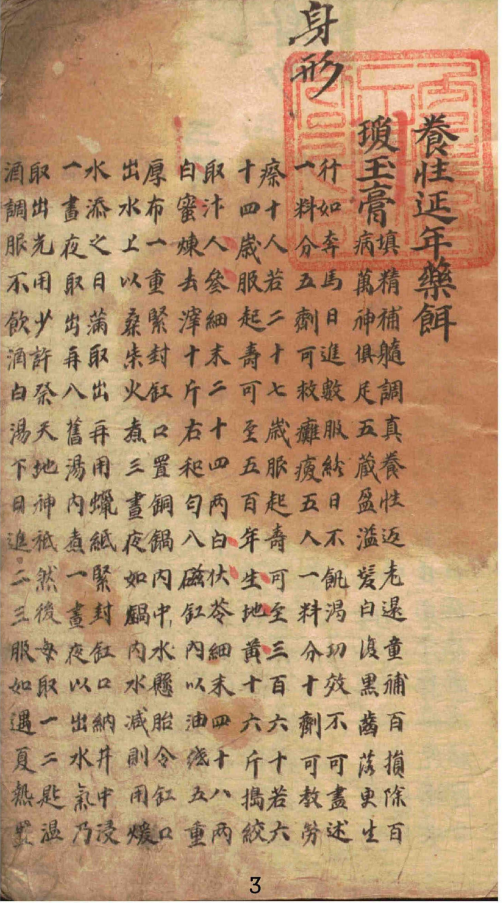 身形
養性延年藥餌
瓊玉膏
填精補髓調真養性返老還童補百損除百
病萬神俱足五藏盈溢髮白復黑齒落更生
行如奔馬日進數服終日不飢渴功效不可盡述
一料分五劑可救癱瘓五人一料分十劑可救勞
瘵十人若二十七歲服起壽可至三百六十若六
十四歲服起壽可至五百年生地黃十六斤搗絞
取汁人參細末二十四兩白伏苓細末四十八兩
白蜜煉去滓十斤右和勻入磁缸內以油紙五重
厚布一重緊封缸口置銅鍋內中水懸胎令缸口
出水上以桑柴火煮三晝夜如鍋內水減則用煖
水添之日滿取出再用蠟紙緊封缸口納井中浸
一晝夜取出再入舊湯內煮一晝夜以出水氣乃
取出先用少許祭天地神祇然後每取一二匙溫
酒調服不飲酒白湯下日進二三服如遇夏熱置
3